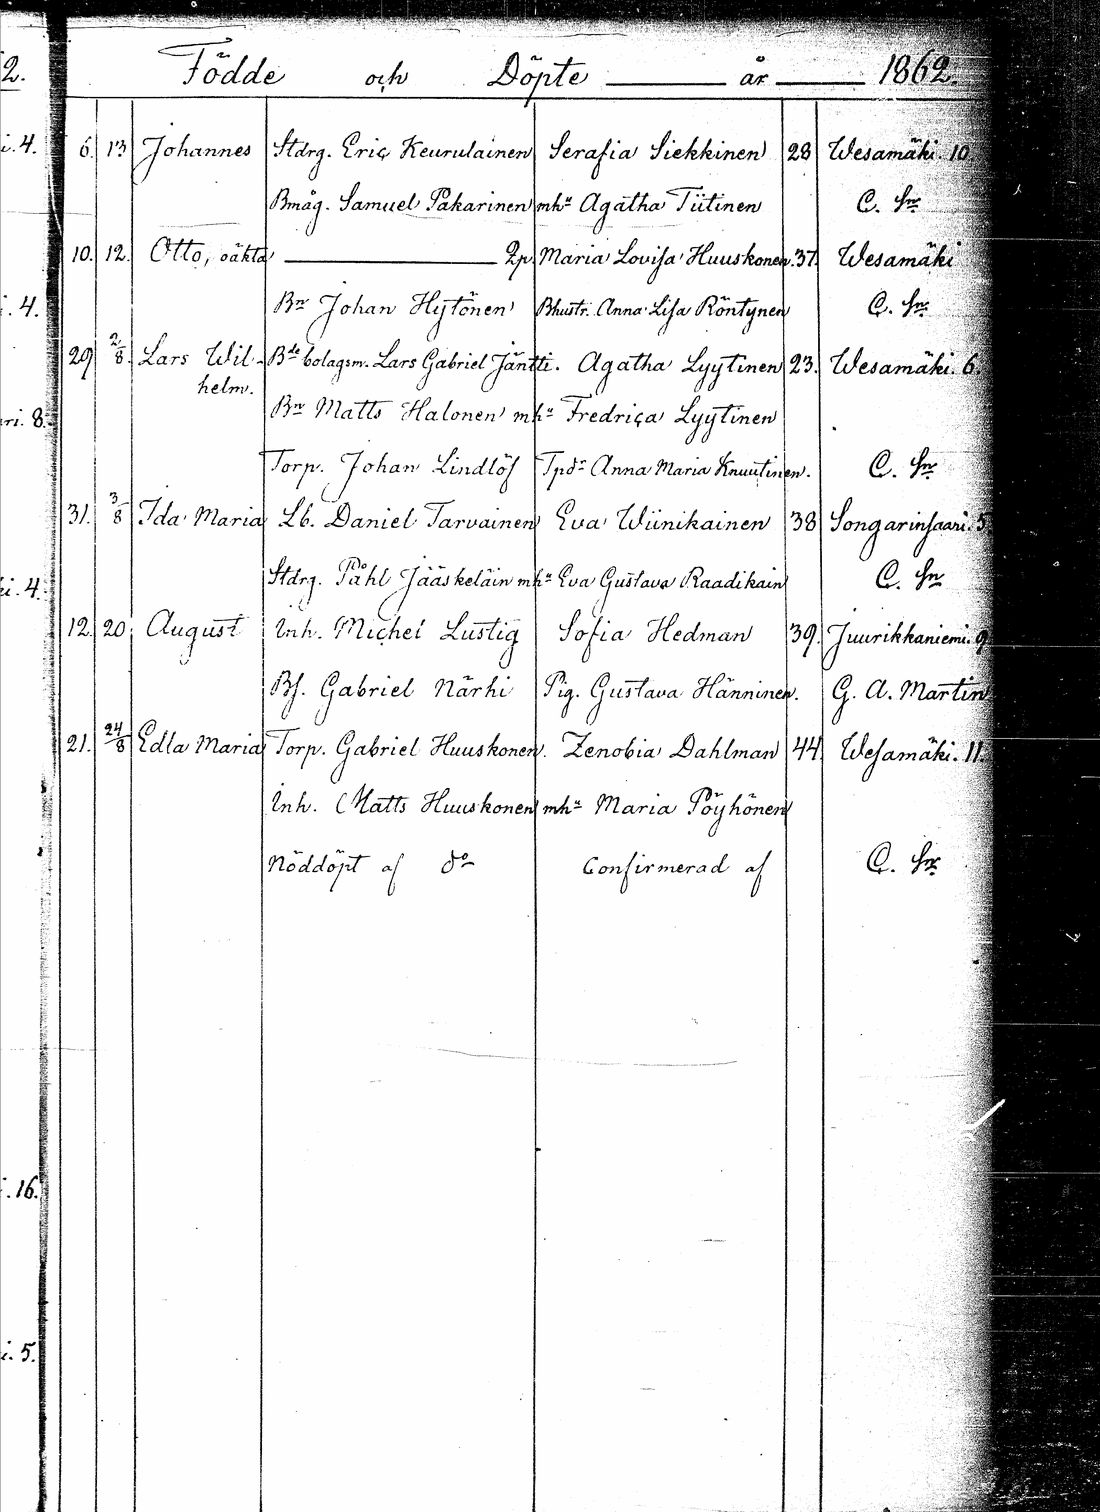 2.
Födde och Döpte år 1862.
i. 4. 6. 13 Johannes Stdrg. Eric Keurulainen Serafia Siekkinen 28 Wesamäki. 10.
Bmåg. Samuel Pakarinen mhu Agatha Tiitinen C. Sn
10. 12. Otto, oäkta 2p. Maria Lovisa Huuskonen. 37. Wesamäki
. 4. Bn Johan Hytönen Bhustr. Anna Lisa Röntynen C. Sn
29 2/8. Lars Wil- Bde bolagsm. Lars Gabriel Jäntti. Agatha Lyytinen 23. Wesamäki. 6.
helm.
ri. 8. Bn Matts Halonen mhu Fredrica Lyytinen
Torp. Johan Lindlöf Tpdr Anna Maria Knuutinen. C. Sn
31. 3/8 Ida Maria Lb. Daniel Tarvainen Eva Wiinikainen 38 Songarinsaari. 5
i. 4. Stdrg. Påhl Jääskeläin mhu Eva Gustava Raadikain C. Sn
12. 20 August Inh. Michel Lustig Sofia Hedman 39. Juurikkaniemi. 9
Bf. Gabriel Närhi Pig. Gustava Hänninen. G. A. Martin
21. 24/8 Edla Maria Torp. Gabriel Huuskonen. Zenobia Dahlman 44. Wesamäki. 11.
Inh. Matts Huuskonen mhu Maria Pöyhönen
Nöddöpt af do Confirmerad af C. Sn
. 16.
i. 5.